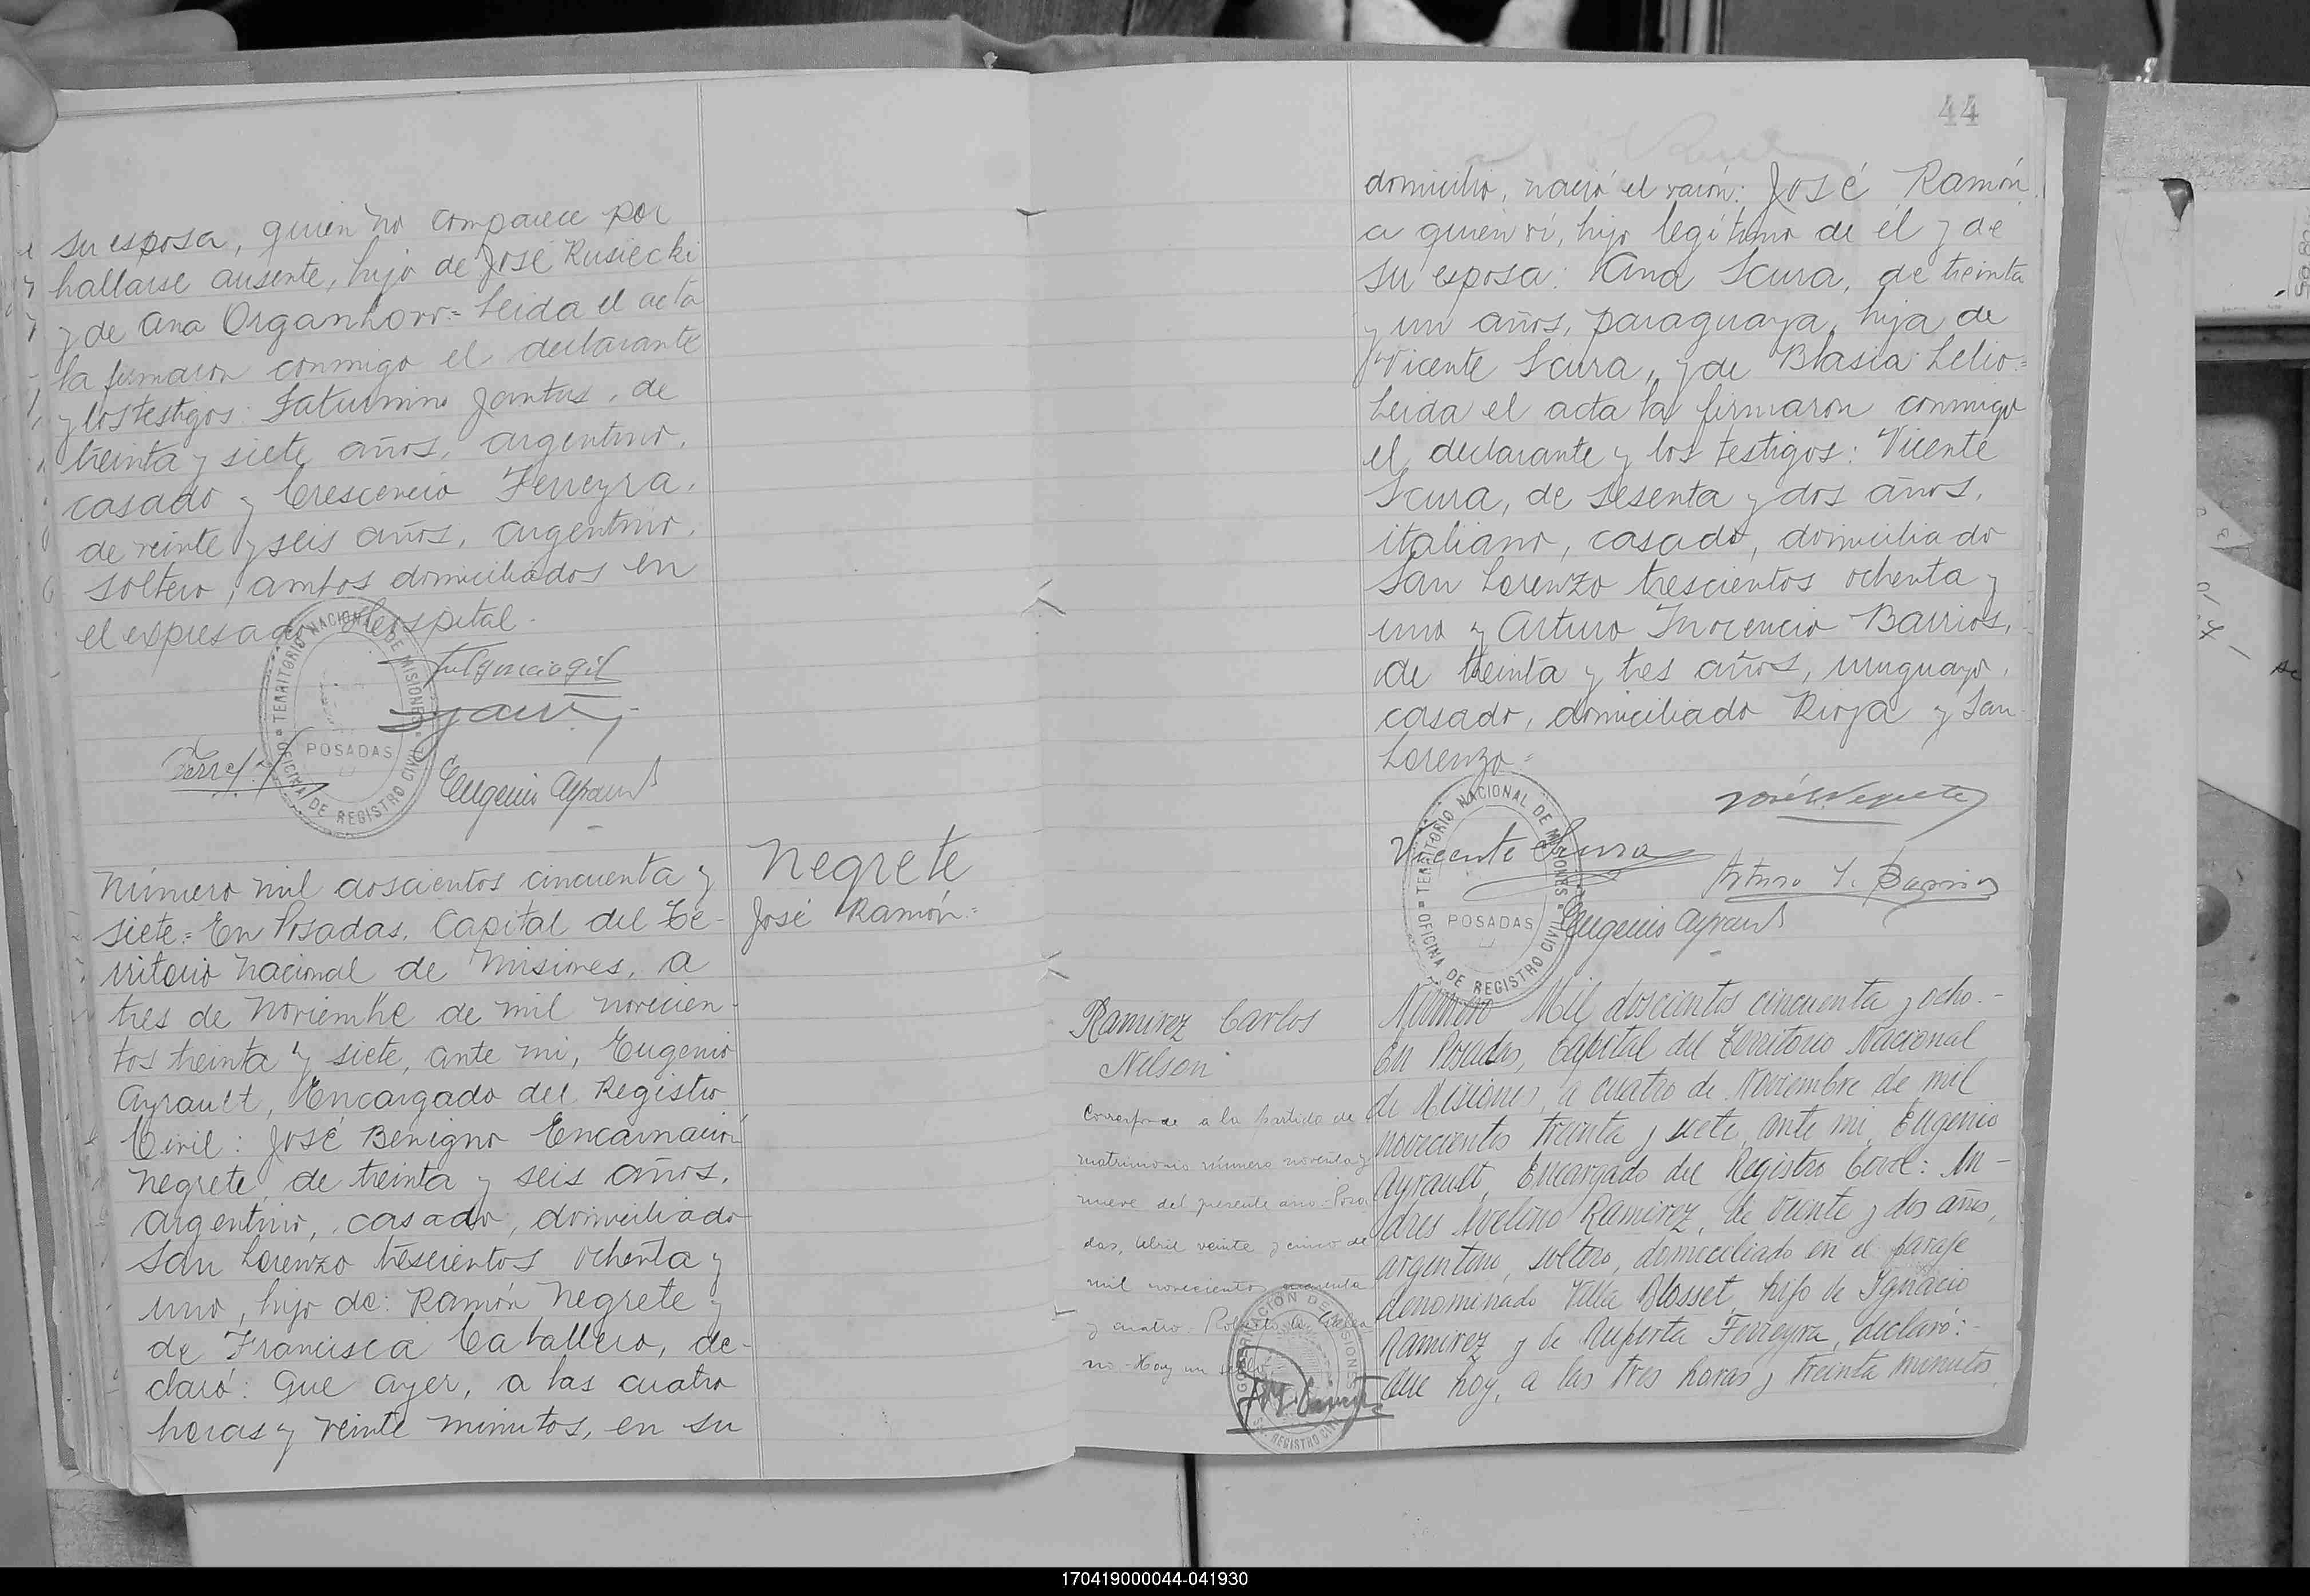 su esposa, quien no comparece por
hallarse ausente, hijo de José Rusiecki
y de Ana Organhorr= Leida el acta
la firmaron conmigo el declarante
y los testigos: Saturnino Jantus, de
treinta y siete años, argentino,
casado y Crescencio Ferreyra,
de veinte y seis años, argentino,
soltero, ambos domiciliados en
el expresado Hospital.
TERRITORIO NACIONAL DE MISIONES
OFICINA DE REGISTRO CIVIL
POSADAS
Fulgencio Gil
Eugenio Ayrault
Número mil doscientos cincuenta y
siete= En Posadas, Capital del Te-
rritorio Nacional de Misiones, a
tres de Noviembre de mil novecien-
tos treinta y siete, ante mi, Eugenio
Ayrault, Encargado del Registro
Civil: José Benigno Encarnación
Negrete, de treinta y seis años,
argentino, casado, domiciliado
San Lorenzo trescientos ochenta y
uno, hijo de: Ramón Negrete y
de Francisca Caballero, de-
claró: Que ayer, a las cuatro
horas y veinte minutos, en su
Negrete
José Ramón=
44
domicilio, nació el varón: José Ramón,
a quien ví, hijo legítimo de él y de
su esposa: Ana Scura, de treinta
y un años, paraguaya, hija de
Vicente Scura, y de Blasia Lelio=
Leida el acta la firmaron conmigo
el declarante y los testigos: Vicente
Scura, de sesenta y dos años,
italiano, casado, domiciliado
San Lorenzo trescientos ochenta y
uno y Arturo Inocencio Barrios,
de treinta y tres años, uruguayo,
casado, domiciliado Rioja y San
Lorenzo=
José Negrete
Vicente Scura
Arturo I. Barrios
TERRITORIO NACIONAL DE MISIONES
OFICINA DE REGISTRO CIVIL
POSADAS
Eugenio Ayrault
Ramirez Carlos
Nelson
Corresponde a la partida de
matrimonio número noventa y
nueve del presente año.- Posa
das, Abril veinte y cinco de
mil novecientos cuarenta
y cuatro. Roberto
no.- Hay un sello
GOBERNACIÓN DE MISIONES
REGISTRO CIVIL
Número Mil doscientos cincuenta y ocho.-
En Posadas, Capital del Territorio Nacional
de Misiones, a cuatro de Noviembre de mil
novecientos treinta y siete, ante mi, Eugenio
Ayrault, Encargado del Registro Civil: An-
dres Avelino Ramirez, de veinte y dos años,
argentino, soltero, domiciliado en el paraje
denominado Villa Blosset, hijo de Ignacio
Ramirez y de Ruperta Ferreyra, declaró:-
Que hoy, a las tres horas y treinta minutos,
170419000044-041930